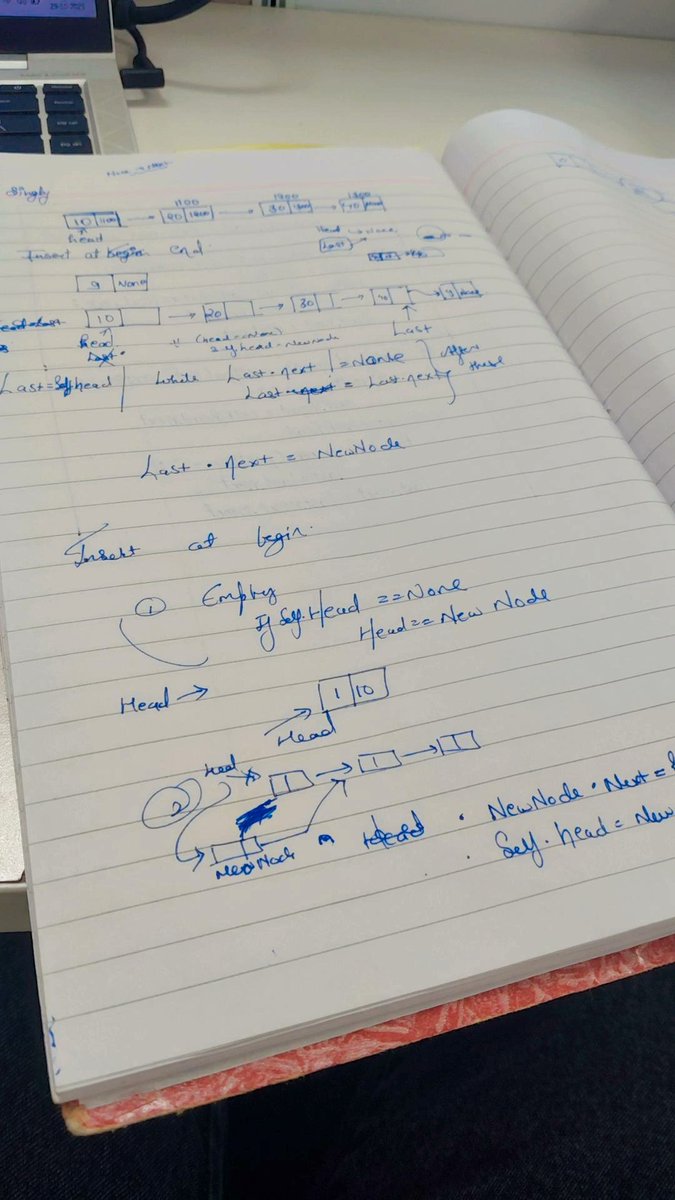 Singly
1100 1200 1300
10 1100 20 1200 30 1300 40
head
Insert at begin end
Last
9 None
10 20 30 40 9
head Last
Last
if (head = None)
Self head = NewNode
Last = Self head while Last.next != None
Last.next = Last.next
After these
Last.next = NewNode
Insert at begin.
1 Empty
If Self.Head == None
Head == New Node
Head →
1 10
Head
2 Head 1 1 1
NewNode Head . NewNode.Next = S
. Self.head = New